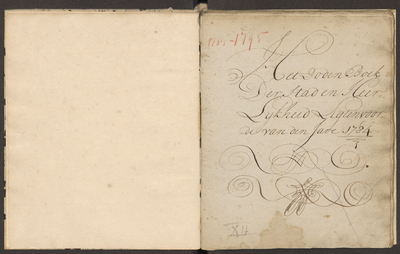 1785-1795
Het Doden Boek
Der Stad en Heer-
Lykheid Ligtenvoor-
de van den Jare 1784
XII